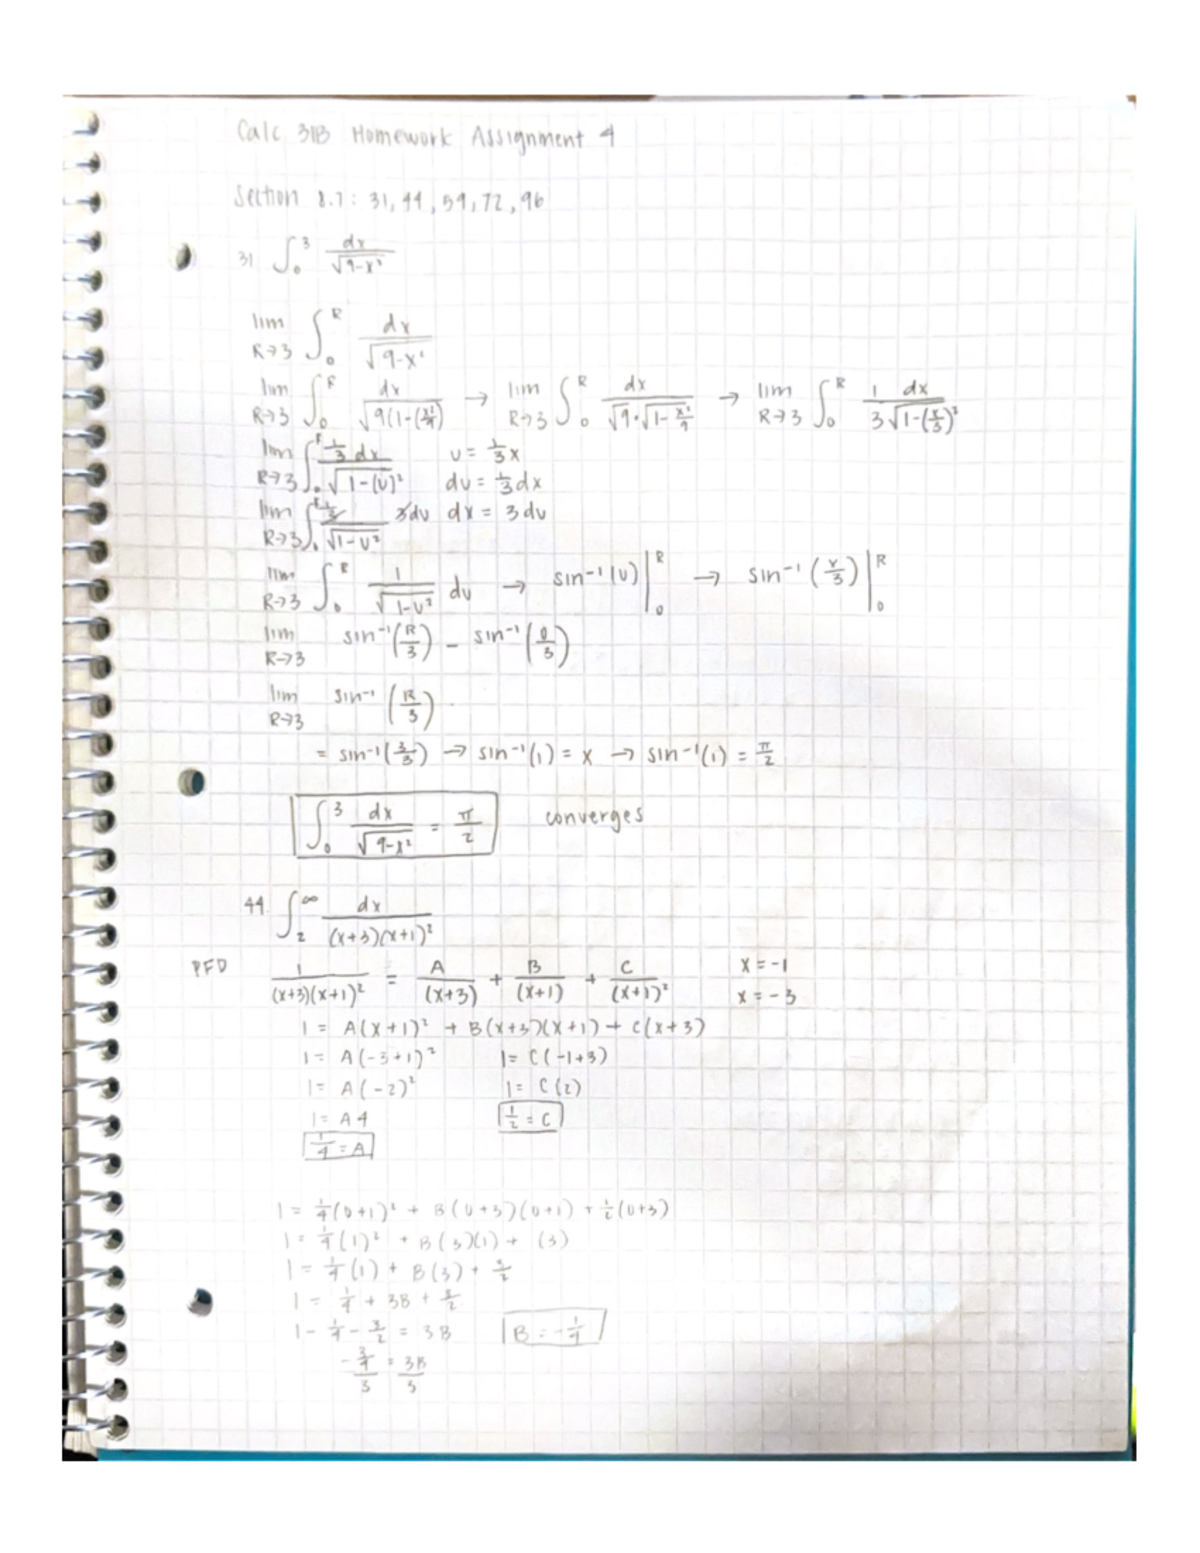 Calc 31B Homework Assignment 4
Section 8.7: 31, 44, 59, 72, 96
31 ∫₀³ dx/√(9-x²)
lim R→3 ∫₀ᴿ dx/√(9-x²)
lim R→3 ∫₀ᴿ dx/√(9(1-(x²/9)) → lim R→3 ∫₀ᴿ dx/(√9·√(1-x²/9)) → lim R→3 ∫₀ᴿ 1 dx/(3√(1-(x/3)²))
lim R→3 ∫₀ᴿ ⅓ dx/√(1-(u)²) u = ⅓x
du = ⅓dx
lim R→3 ∫₀ᴿ ⅓/√(1-u²) 3du dx = 3du
lim R→3 ∫₀ᴿ 1/√(1-u²) du → sin⁻¹(u)|₀ᴿ → sin⁻¹(x/3)|₀ᴿ
lim R→3 sin⁻¹(R/3) - sin⁻¹(0/3)
lim R→3 sin⁻¹(R/3)
= sin⁻¹(3/3) → sin⁻¹(1) = x → sin⁻¹(1) = π/2
∫₀³ dx/√(9-x²) = π/2 converges
44. ∫₂^∞ dx/((x+3)(x+1)²)
PFD 1/((x+3)(x+1)²) = A/(x+3) + B/(x+1) + C/(x+1)² x = -1
x = -3
1 = A(x+1)² + B(x+3)(x+1) + C(x+3)
1 = A(-3+1)² 1 = C(-1+3)
1 = A(-2)² 1 = C(2)
1 = A4 ½ = C
¼ = A
1 = ¼(0+1)² + B(0+3)(0+1) + ½(0+3)
1 = ¼(1)² + B(3)(1) + (3)
1 = ¼(1) + B(3) + 3/2
1 = ¼ + 3B + 3/2
1 - ¼ - 3/2 = 3B B = -¼
-¾/3 = 3B/3